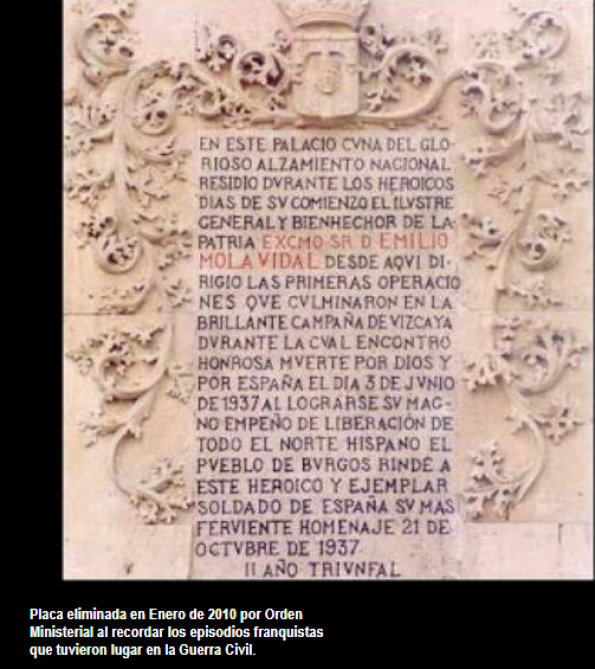 EN ESTE PALACIO CVNA DEL GLO-
RIOSO ALZAMIENTO NACIONAL
RESIDIO DVRANTE LOS HEROICOS
DIAS DE SV COMIENZO EL ILVSTRE
GENERAL Y BIENHECHOR DE LA
PATRIA EXCMO SR D EMILIO
MOLA VIDAL DESDE AQVI DI-
RIGIO LAS PRIMERAS OPERACIO
NES QVE CVLMINARON EN LA
BRILLANTE CAMPAÑA DE VIZCAYA
DVRANTE LA CVAL ENCONTRO
HONROSA MVERTE POR DIOS Y
POR ESPAÑA EL DIA 3 DE JVNIO
DE 1937 AL LOGRARSE SV MAG-
NO EMPEÑO DE LIBERACIÓN DE
TODO EL NORTE HISPANO EL
PVEBLO DE BVRGOS RINDE A
ESTE HEROICO Y EJEMPLAR
SOLDADO DE ESPAÑA SV MAS
FERVIENTE HOMENAJE 21 DE
OCTVBRE DE 1937
II AÑO TRIVNFAL
Placa eliminada en Enero de 2010 por Orden
Ministerial al recordar los episodios franquistas
que tuvieron lugar en la Guerra Civil.